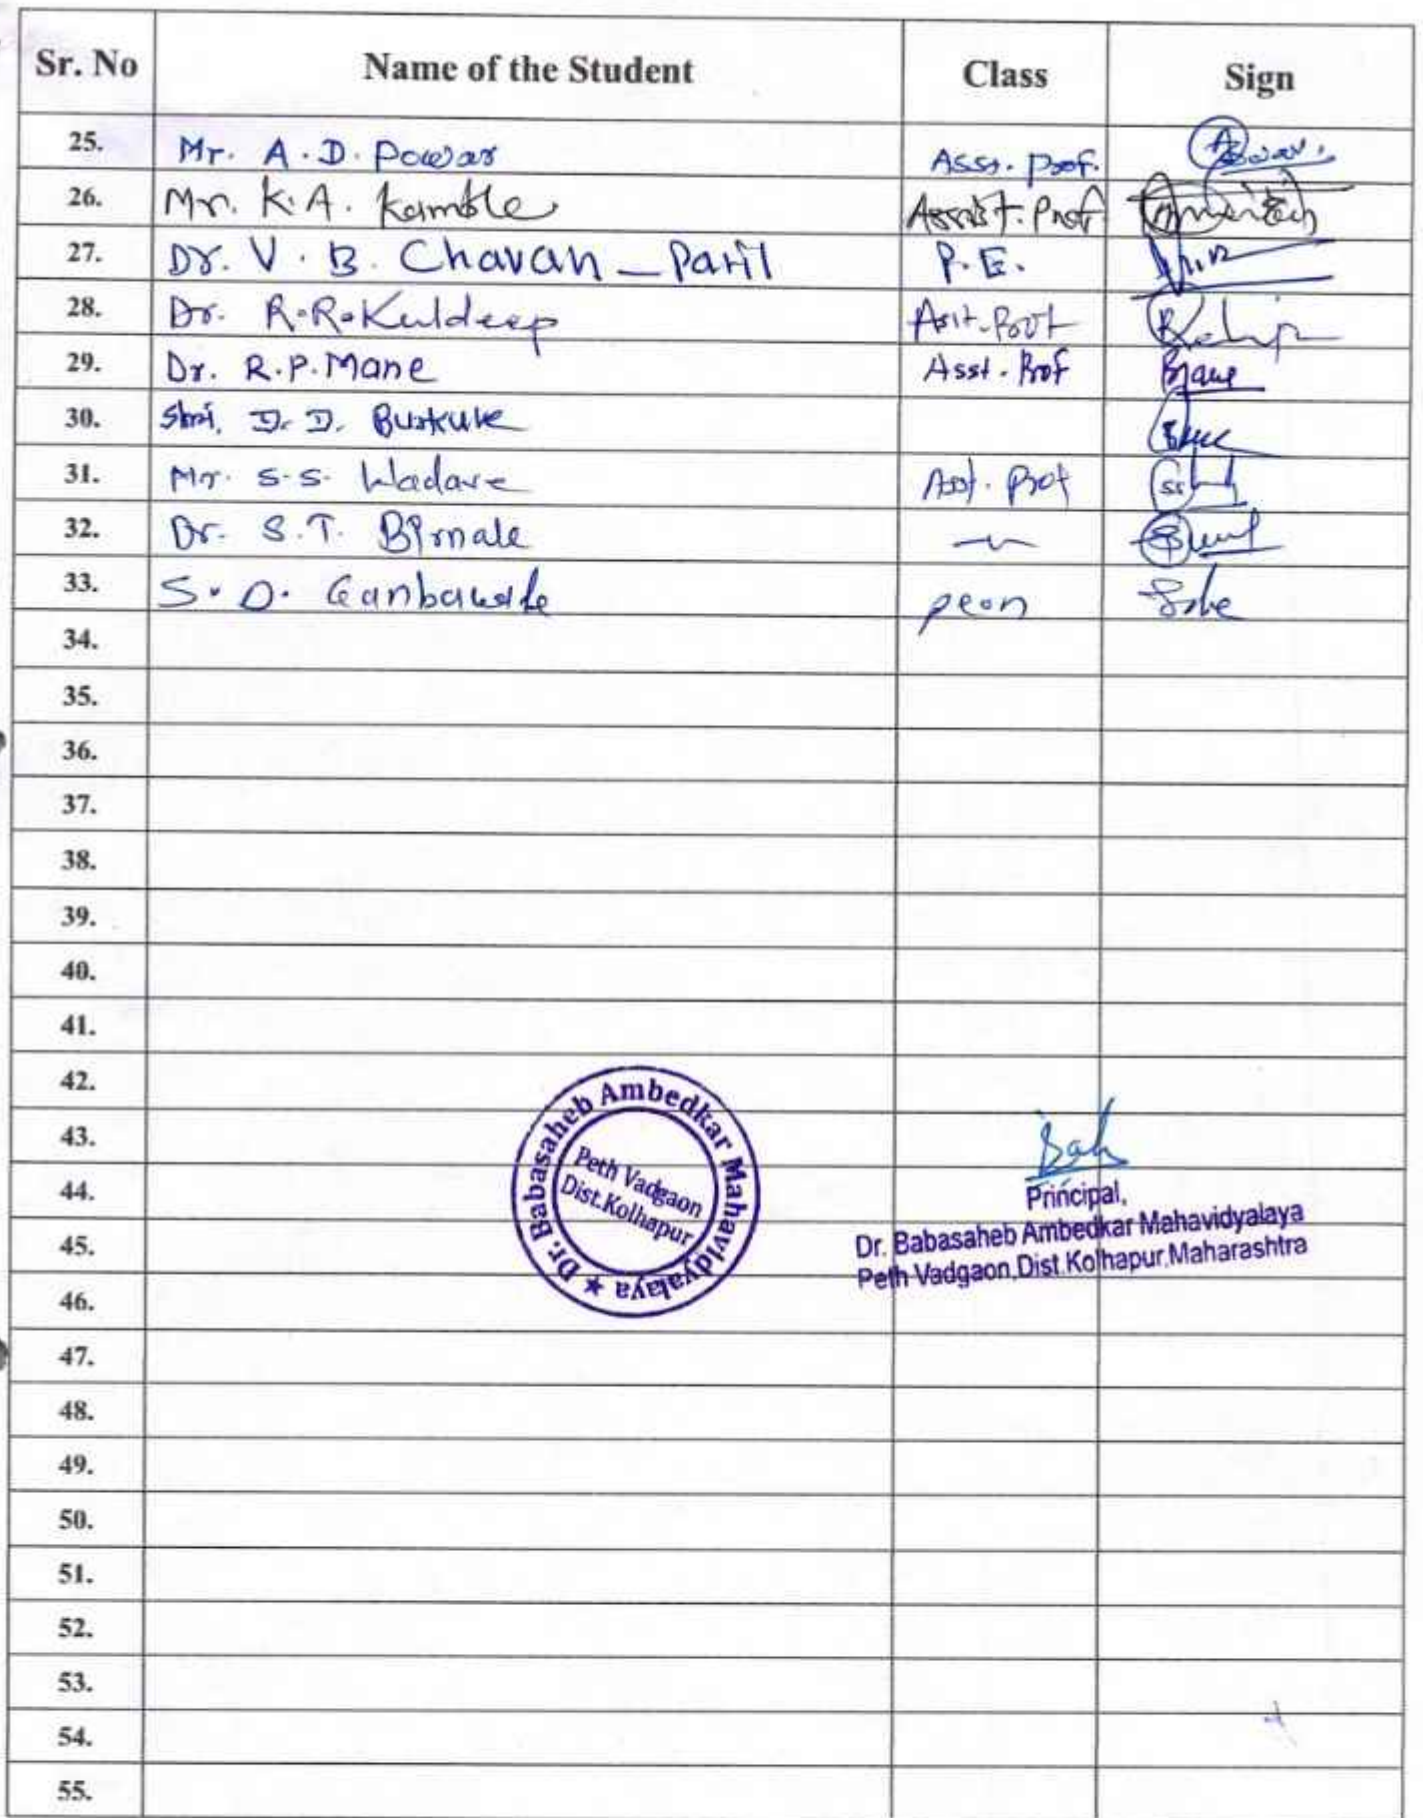 Sr. No Name of the Student Class Sign
25. Mr. A.D. Powar Asst. Prof.
26. Mr. K.A. Kamble Assist. Prof
27. Dr. V. B. Chavan-Patil P.E.
28. Dr. R.R. Kuldeep Asst. Prof
29. Dr. R.P. Mane Asst. Prof
30. Shri. D. D. Burkule
31. Mr. S.S. Wadare Asst. Prof
32. Dr. S.T. Birnale
33. S. D. peon
34.
35.
36.
37.
38.
39.
40.
41.
42.
43.
44.
45.
46.
47.
48.
49.
50.
51.
52.
53.
54.
55.
Dr. Babasaheb Ambedkar Mahavidyalaya ★
Peth Vadgaon
Dist.Kolhapur
Principal,
Dr. Babasaheb Ambedkar Mahavidyalaya
Peth Vadgaon,Dist.Kolhapur,Maharashtra